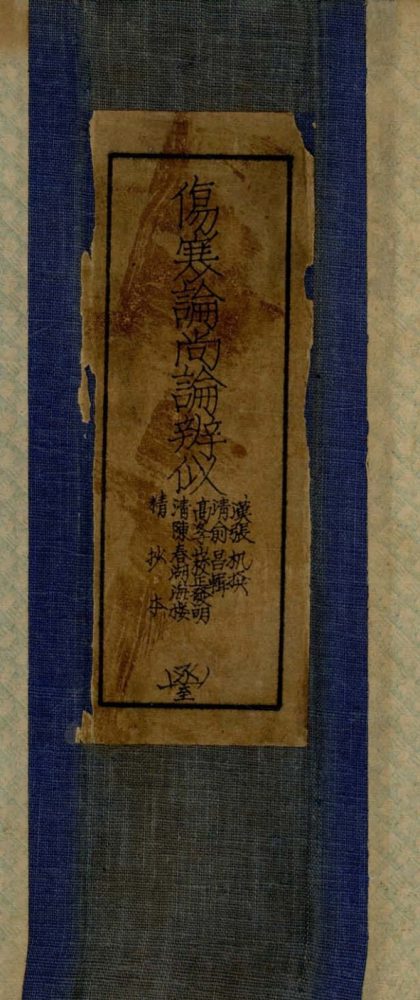 傷寒論尚論辨似
漢張机撰
清俞昌輯
高校正發明
清陳春湖海楼
精抄本